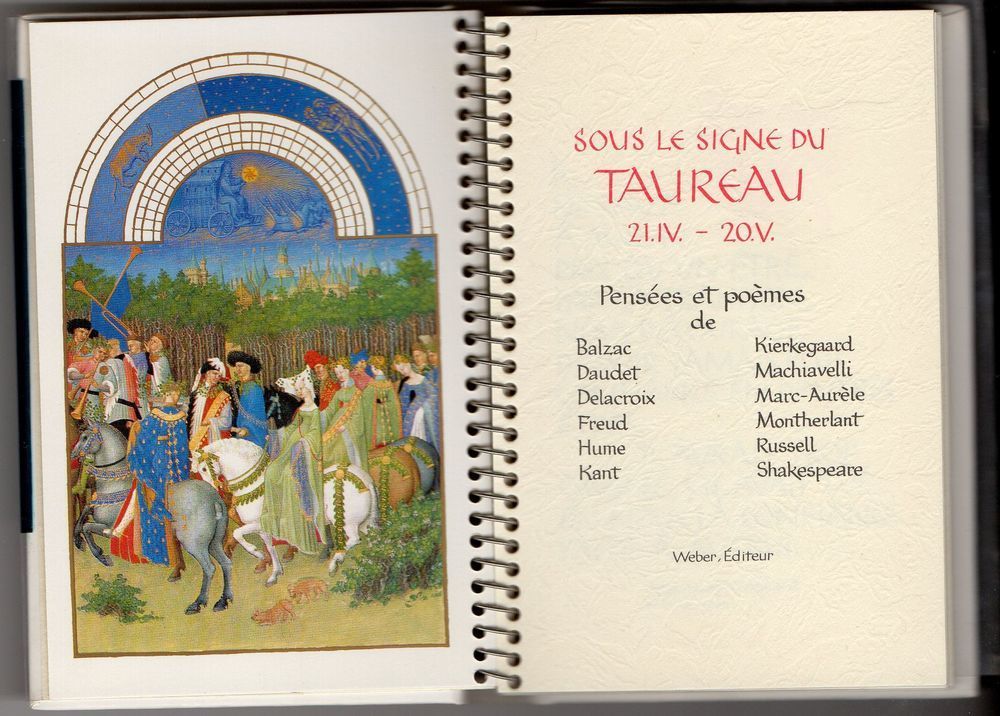 SOUS LE SIGNE DU
TAUREAU
21.IV. – 20.V.
Pensées et poèmes
de
Balzac
Daudet
Delacroix
Freud
Hume
Kant
Kierkegaard
Machiavelli
Marc-Aurèle
Montherlant
Russell
Shakespeare
Weber, Éditeur